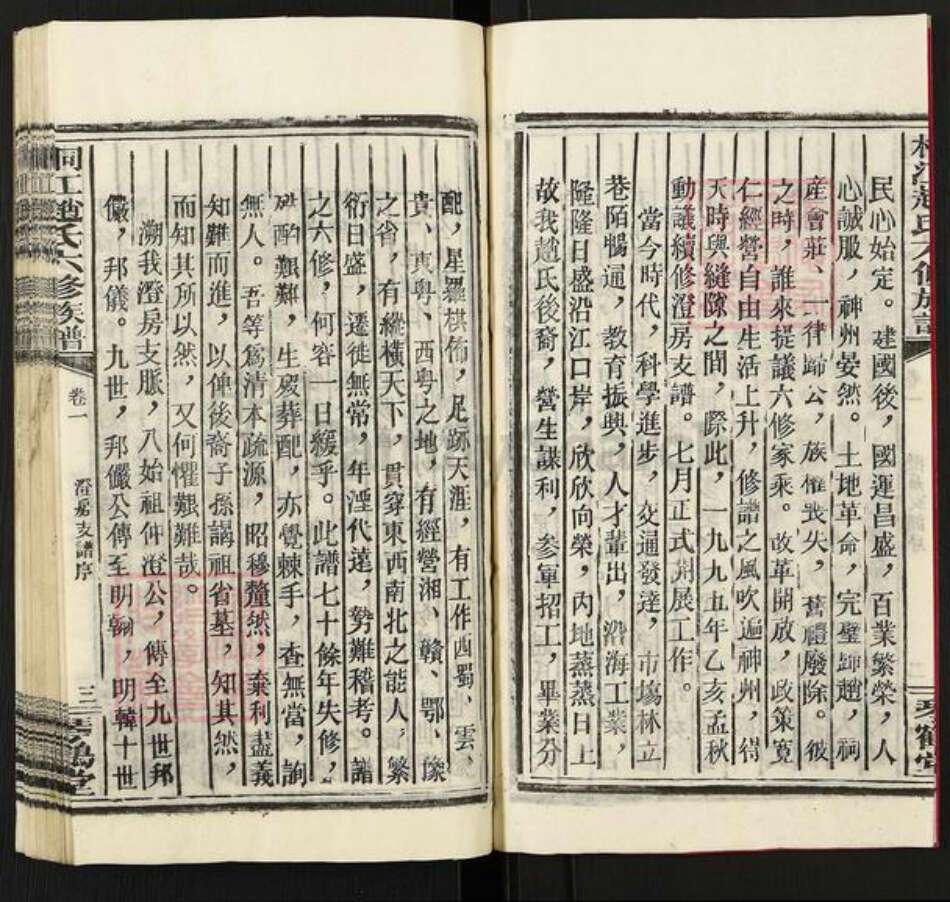 民心始定。建國後，國運昌盛，百業繁榮，人
心誠服，神州晏然。土地革命，完璧歸趙，祠
產會莊、一律歸公，族權喪失，舊禮廢除。彼
之時，誰來提議六修家乘。改革開放，政策寬
仁經營自由生活上升，修譜之風吹遍神州，得
天時與縫隙之間，際此，一九九五年乙亥孟秋
動議續修澄房支譜。七月正式開展工作。
當今時代，科學進步，交通發達，市塲林立
巷陌暢通，教育振興，人才輩出，沿海工業，
隆隆日盛沿江口岸，欣欣向榮，內地蒸蒸日上
故我趙氏後裔，營生謀利，參軍招工，畢業分
配，星羅棋佈，足跡天涯，有工作西蜀、雲、
貴、東粵、西粵之地，有經營湘、贛、鄂、豫
之省，有縱橫天下，貫穿東西南北之能人，繁
衍日盛，遷徙無常，年湮代遠，勢難稽考。譜
之六修，何容一日緩乎。此譜七十餘年失修，
艱難，生歿葬配，亦覺棘手，查無當，詢
無人。吾等爲清本疏源，昭穆釐然，棄利盡義
知難而進，以俾後裔子孫謁祖省墓，知其然，
而知其所以然，又何懼艱難哉。
溯我澄房支脈，八始祖仲澄公，傳至九世邦
儼，邦儀。九世，邦儼公傳至明翰，明韓十世
桐江趙氏六修族譜
卷一
澄房支譜序
三
琴鶴堂